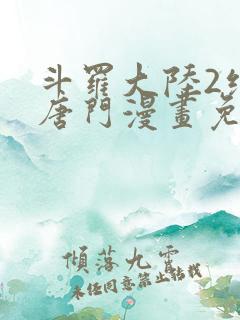 斗羅大陸2絕
唐門漫畫免
傾落九雲
未經同意禁止轉載